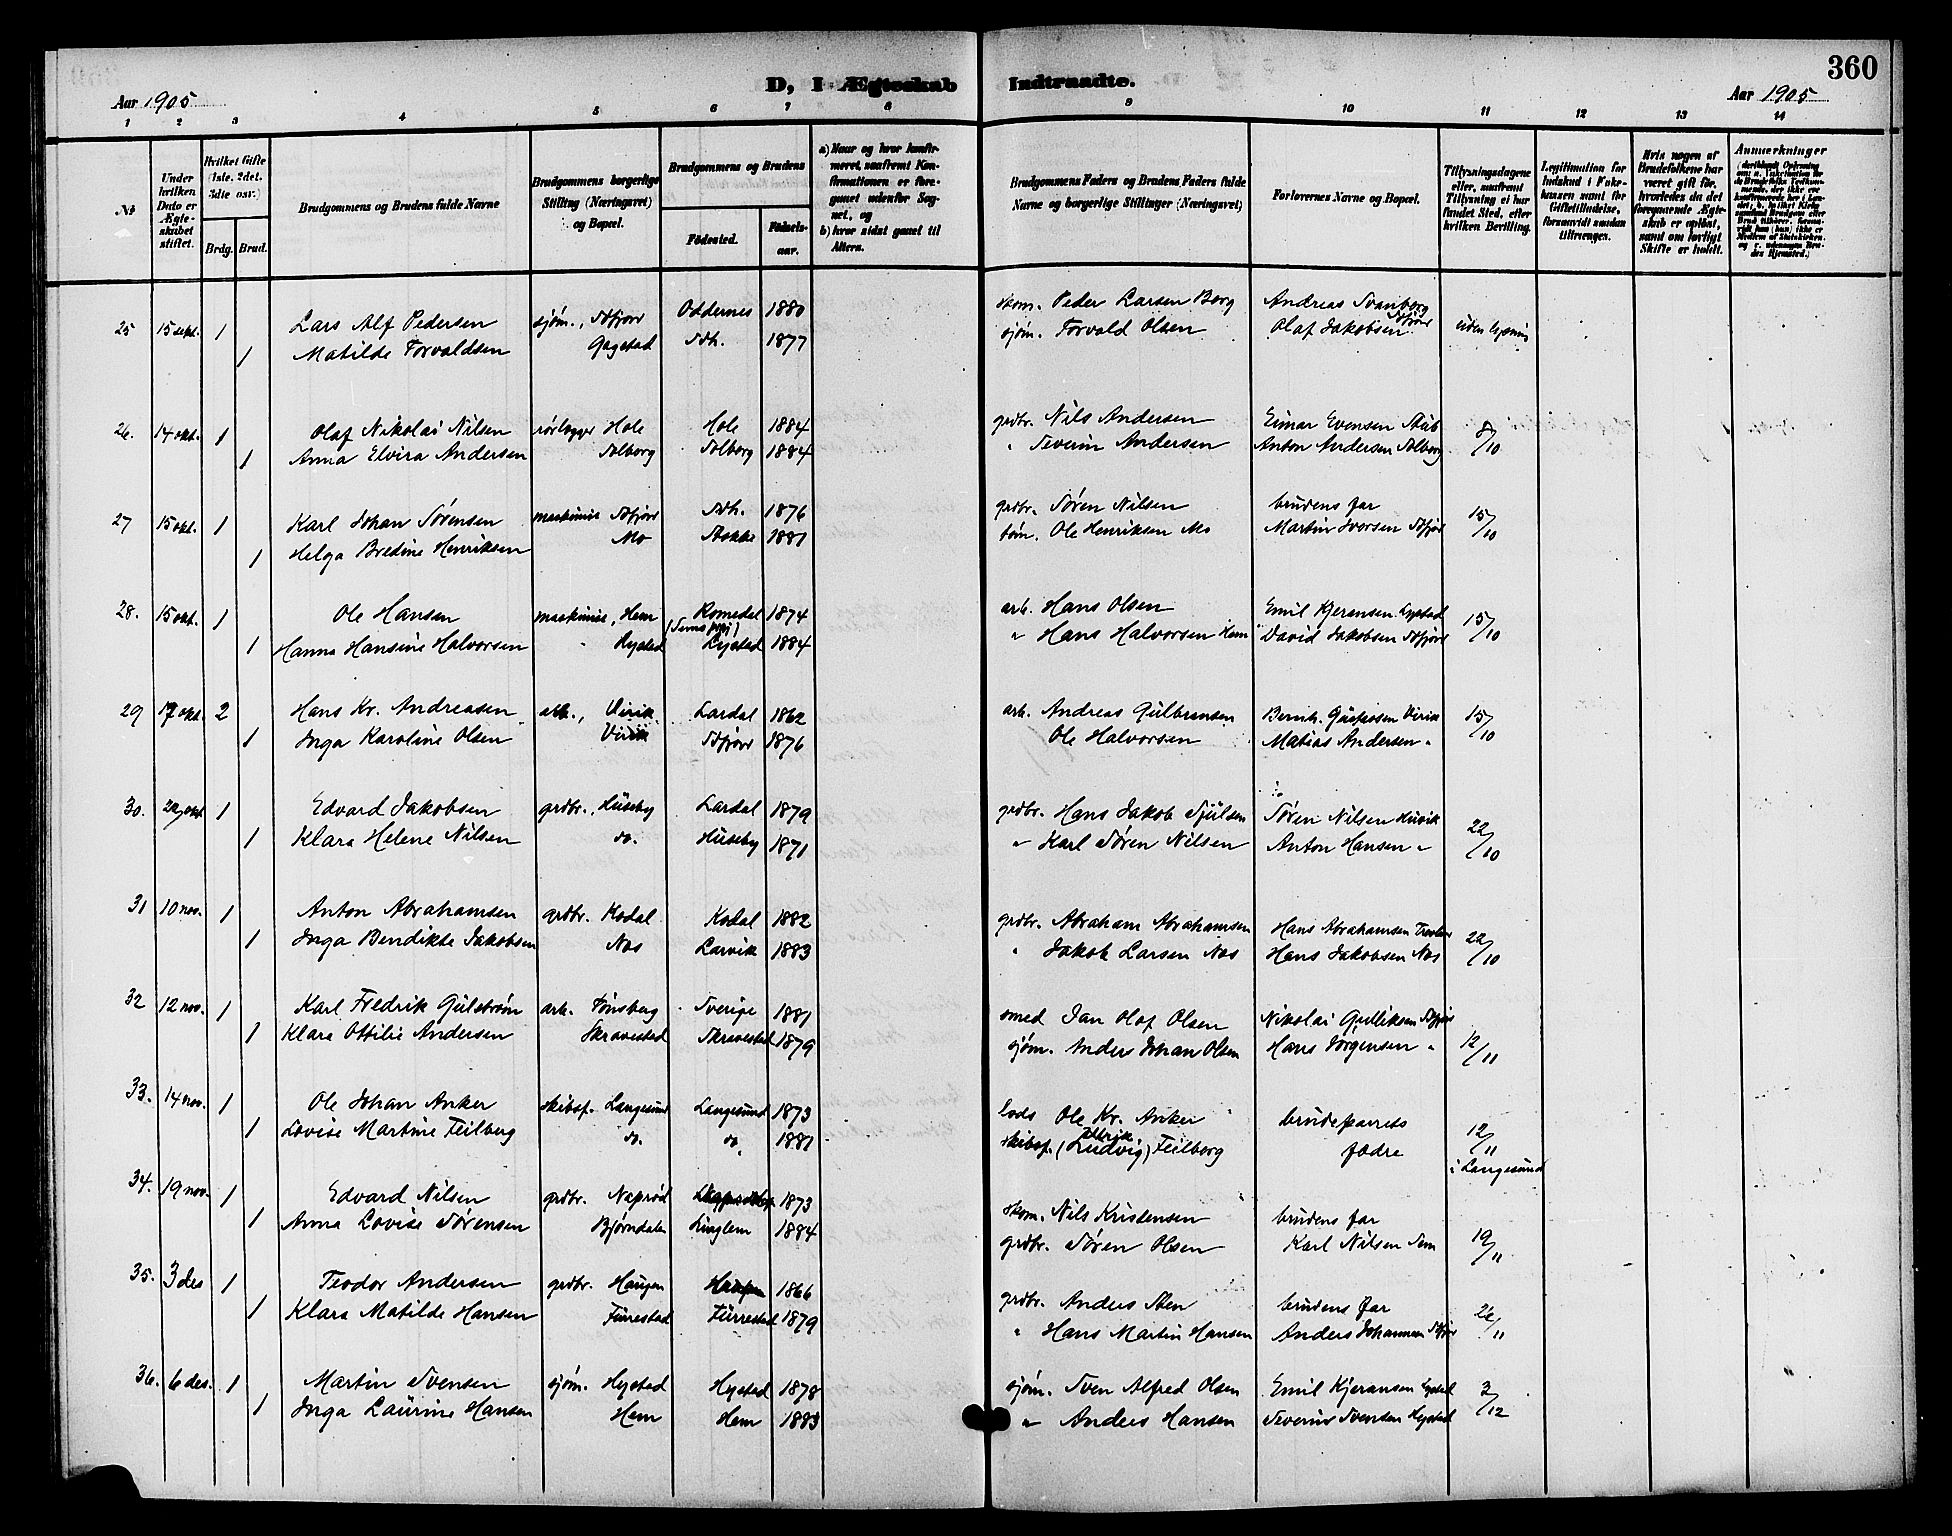 360
D, I Ægteskab Indtraadte.
Aar 1905
Aar 1905
1 2 3 4 5 6 7 8 9 10 11 12 13 14
Nr.
Under hvilken Dato er Ægteskabet stiftet.
Hvilket Gifte (1ste, 2det, 3die osv.)
Brdg. Brud.
Brudgommens og Brudens fulde Navne
Brudgommens borgerlige Stilling (Næringsvei) og Bopæl.
Brudgommens og Brudens
Fødested.
Fødselsaar.
a) Naar og hvor konfirmeret, saafremt Konfirmationen er foregaaet udenfor Sognet, og
b) hvor sidst gaaet til Alters.
Brudgommens Faders og Brudens Faders fulde Navne og borgerlige Stillinger (Næringsvei)
Forlovernes Navne og Bopæl.
Tillysningsdagene eller, saafremt Tillysning ei har fundet Sted, efter hvilken Bevilling.
Legitimation for Indskud i Enkekassen samt for Giftetilladelse, forsaavidt saadan tiltrænges.
Hvis nogen af Brudefolkene har været gift før, hvorledes da det foregaaende Ægteskab er opløst, samt om lovligt Skifte er holdt.
Anmærkninger
25 15 sept. 1 Lars Alf Pedersen sjøm., Sdfjord Oddernes 1880 skom. Peder Larsen Borg Andreas Svanborg
1 Matilde Torvaldsen Gogstad Sdh. 1877 sjøm. Torvald Olsen Olaf Jakobsen Sdfjord uden lysning
26. 14 okt. 1 Olaf Nikolai Nilsen rørlægger Hole Hole 1884 grdbr. Nils Andersen Einar Evensen Stub 8/10
1 Anna Elvira Andersen Solberg Solberg 1884 " Severin Andersen Anton Andersen Solberg
27 15 okt. 1 Karl Johan Sørensen maskinist Sdfjord Sdh. 1876 grdbr. Søren Nilsen brudens far 15/10
1 Helga Bredine Henriksen Mo Stokke 1881 tøm. Ole Henriksen Mo Martin Iversen Sdfjord
28. 15 okt. 1 Ole Hansen maskinist, Hem Romedal 1874 arb. Hans Olsen Emil Kjeransen Lystad 15/10
1 Hanna Hansine Halvorsen Lystad Lystad 1884 " Hans Halvorsen Hem David Jakobsen Sdfjord
29 17 okt. 2 Hans Kr. Andreasen arb., Virik Lardal 1862 arb. Andreas Gulbransen Bernh. Gustafsen Virik 15/10
1 Inga Karoline Olsen Virik Sdfjord 1876 Ole Halvorsen Matias Andersen "
30. 22 okt. 1 Edvard Jakobsen grdbr., Huseby Lardal 1879 grdbr. Hans Jakob Sjulsen Søren Nilsen Husvik 22/10
1 Klara Helene Nilsen do. Huseby 1871 " Karl Søren Nilsen Anton Hansen "
31 10 nov. 1 Anton Abrahamsen grdbr. Kodal Kodal 1882 grdbr. Abraham Abrahamsen Hans Abrahamsen 22/10
1 Inga Bendikte Jakobsen Nos Larvik 1883 " Jakob Larsen Nos Hans Jakobsen Nos
32 12 nov. 1 Karl Fredrik Gulstrøm arb. Tønsberg Sverige 1881 smed Jan Olof Olsen Nikolai Gulliksen Sdfjord 12/11
1 Klara Ottilie Andersen Skravestad Skravestad 1879 sjøm. Anders Johan Olsen Hans Jørgensen "
33. 14 nov. 1 Ole Johan Anker skibsf. Langesund Langesund 1873 lods Ole Kr. Anker brudeparrets 12/11
1 Lovise Martine Feilberg do. do. 1881 skibsf. (Ludvig) Feilberg fædre i Langesund
34. 19 nov. 1 Edvard Nilsen grdbr. Naprød 1873 skom. Nils Kristensen brudens far
1 Anna Lovise Sørensen Bjørndalen Linglem 1884 grdbr. Søren Olsen Karl Nilsen Sem 19/11
35. 3 des 1 Teodor Andersen grdbr. Haugen Haugen 1866 grdbr. Anders Sten brudens far 26/11
1 Klara Matilde Hansen Furrestad Furrestad 1879 " Hans Martin Hansen Anders Johannesen Sdfjord
36. 6 des. 1 Martin Svensen sjøm. Hystad Hystad 1878 sjøm. Sven Alfred Olsen Emil Kjeransen Lystad 3/12
1 Inga Laurine Hansen Hem Hem 1883 " Anders Hansen Severin Svensen Hystad